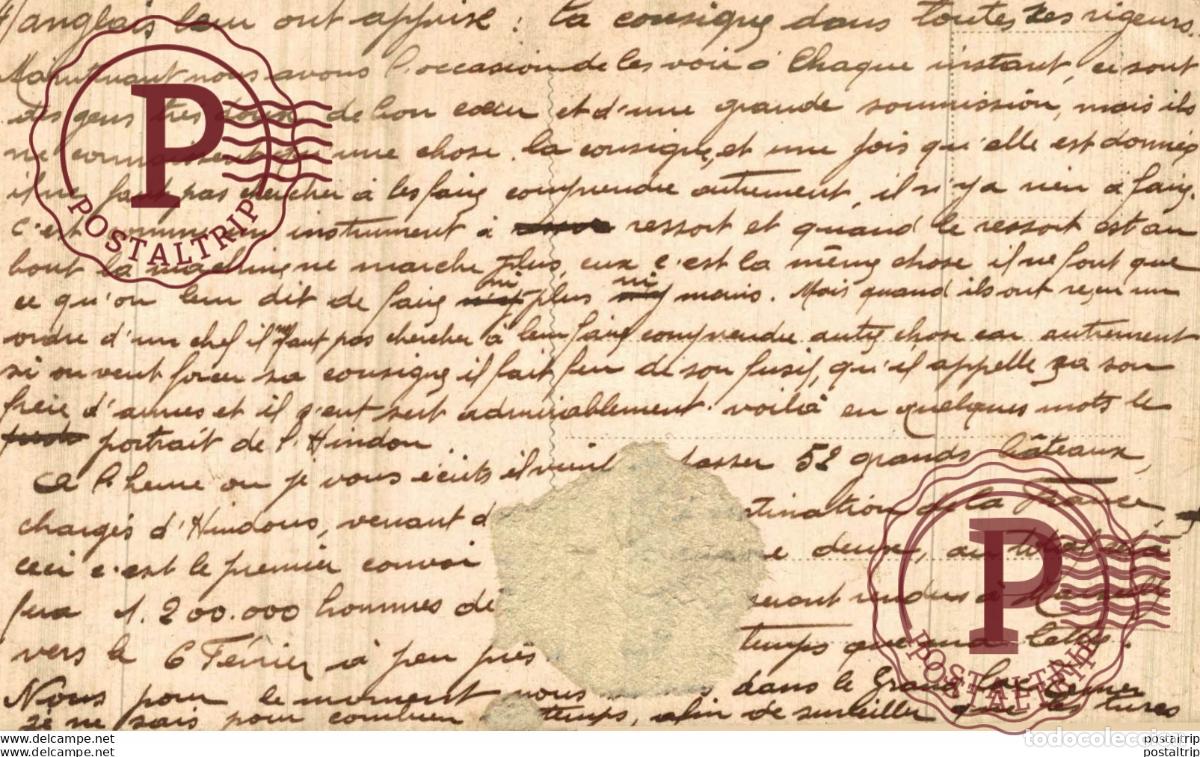 4/ anglais leur ont apprise : la consigne dans toutes ses rigeurs.
Maintenant nous avons l'occasion de les voir à chaque instant, ce sont
des gens très doux de bon cœur et d'une grande soumission, mais ils
ne connaissent une chose. la consigne, et une fois qu'elle est donnée
il ne faut pas chercher à les faire comprendre autrement, il n'y a rien a faire
c'est comme un instrument à ressort et quand le ressort est au
bout la machine ne marche plus, eux c'est la même chose il ne font que
ce qu'on leur dit de faire ni plus ni moins. Mais quand ils ont reçu un
ordre d'un chef il ne faut pas chercher à leur faire comprendre autre chose car autrement
si on veut forcer sa consigne il fait feu de son fusil, qu'il appelle ça son
frère d'armes et il s'ent sert admirablement. voilà en quelques mots le
portrait de l'Hindou
A l'heure ou je vous écrits il vient passer 52 grands bâteaux,
chargés d'Hindous, venant d destination de la France
ceci c'est le premier convoi deux, au total
fera 1.200.000 hommes de seront rendus à Marseille
vers le 6 Février à peu près temps que ma lettre.
Nous pour le moment nous dans le Grand Lac Amer
je ne sais pour combien temps, afin de surveiller que les turcs
POSTALTRIP
P
POSTALTRIP
P
todocoleccion
www.delcampe.net
www.delcampe.net
postaltrip
postaltrip